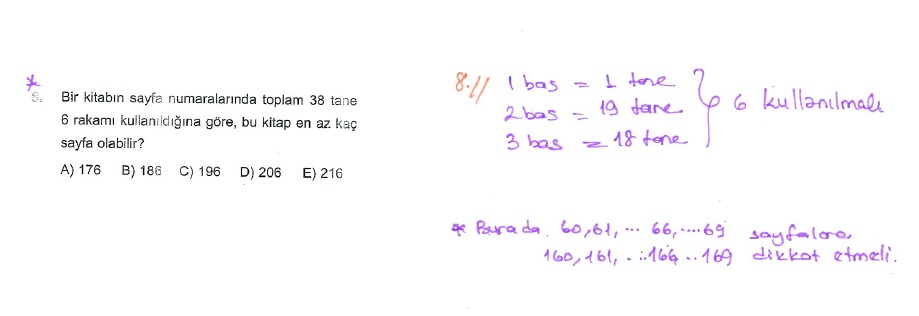 *
8. Bir kitabın sayfa numaralarında toplam 38 tane
6 rakamı kullanıldığına göre, bu kitap en az kaç
sayfa olabilir?
A) 176 B) 186 C) 196 D) 206 E) 216
8.// 1 bas = 1 tane
2 bas = 19 tane
3 bas = 18 tane
6 kullanılmalı
* Burada. 60,61, ... 66, ....69 sayfalara
160,161, ...166 .. 169 dikkat etmeli.